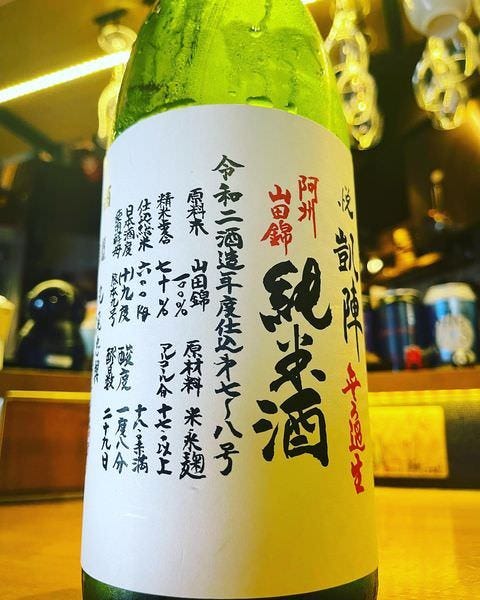 悦 凱陣 無ろ過生
純米酒
阿州
山田錦
令和二酒造年度仕込オ七〜八号
原料米 山田錦 一〇〇% 原材料 米 米麹
精米歩合 七十% アルコール分 十七以上
仕込総米 六〇〇瓩 十八未満
日本酒度 十九度 酸度 一度八分
使用酵母 熊本九号 醪日数 二十九日